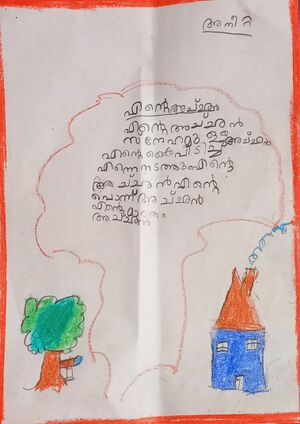 അനീറ്റ
എന്റെ അച്ഛൻ
എന്റെ അച്ഛൻ
സ്നേഹമുള്ള അച്ഛൻ
എന്റെ കൈപിടിച്ച്
എന്നെ നടത്തും എന്റെ
അച്ഛൻ എന്റെ
പൊന്ന് അച്ഛൻ
എന്റെ
അച്ഛൻ